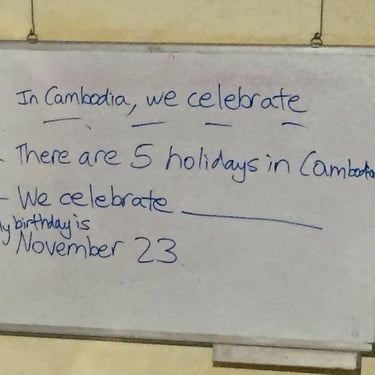 In Cambodia, we celebrate
- There are 5 holidays in Cambodia
- We celebrate ___________
My birthday is
November 23